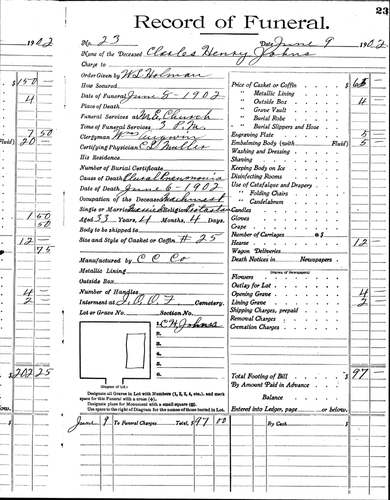 23
Record of Funeral.
1902
No. 23
Date June 9 1902
Name of the Deceased Charles Henry Johns
Charge to
Order Given by W L Holman
How Secured
Date of Funeral June 8 - 1902
Place of Death
Funeral Services at M.E. Church
Time of Funeral Services 3 P.M.
Clergyman Wm
Certifying Physician
His Residence
Number of Burial Certificate
Cause of Death Pneumonia
Date of Death June 6 - 1902
Occupation of the Deceased Machinist
Single or Married Religion
Aged 33 Years, 4 Months, 4 Days
Body to be shipped to
Size and Style of Casket or Coffin # 25
Manufactured by C C Co
Metallic Lining
Outside Box
Number of Handles
Interment at I.O.O.F. Cemetery.
Lot or Grave No. Section No.
1. C H Johns
2.
3.
4.
5.
6.
(Diagram of Lot.)
Designate all Graves in Lot with Numbers (1, 2, 3, 4, etc.), and mark
space for this Funeral with a cross (+).
Designate place for Monument with a small square (□).
Use space to the right of Diagram for the names of those buried in Lot.
Price of Casket or Coffin $ 65
" Metallic Lining
" Outside Box 4 —
" Grave Vault
" Burial Robe
" Burial Slippers and Hose
Engraving Plate 5
Embalming Body (with Fluid) 5
Washing and Dressing
Shaving
Keeping Body on Ice
Disinfecting Rooms
Use of Catafalque and Drapery
" Folding Chairs
" Candelabrum
Candles
Gloves
Crape
Number of Carriages @ $
Hearse 12 —
Wagon Deliveries
Death Notices in Newspapers
(Names of Newspapers)
Flowers
Outlay for Lot
Opening Grave 4 —
Lining Grave 2
Shipping Charges, prepaid
Removal Charges
Cremation Charges
Total Footing of Bill $ 97 —
By Amount Paid in Advance
Balance
Entered into Ledger, page or below.
June 9 To Funeral Charges Total, $97 00
By Cash
$ 150
4
7 50
Fluid) 20
1 50
50
12
75
4
2
$ 202 25
low.